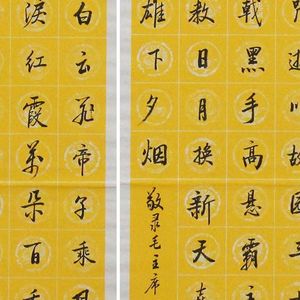 咒逝川故园三
戟黑手高悬霸主
教日月换新天喜
雄下夕烟
敬录毛主席
白云飞帝子乘
淚红霞萬朵百